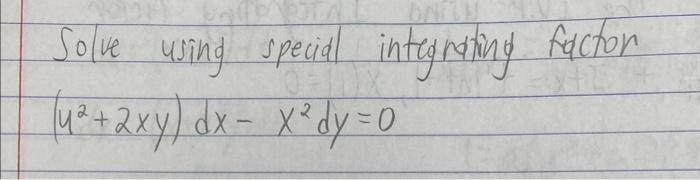 Solve using special integrating factor
(y² + 2xy) dx - x² dy = 0